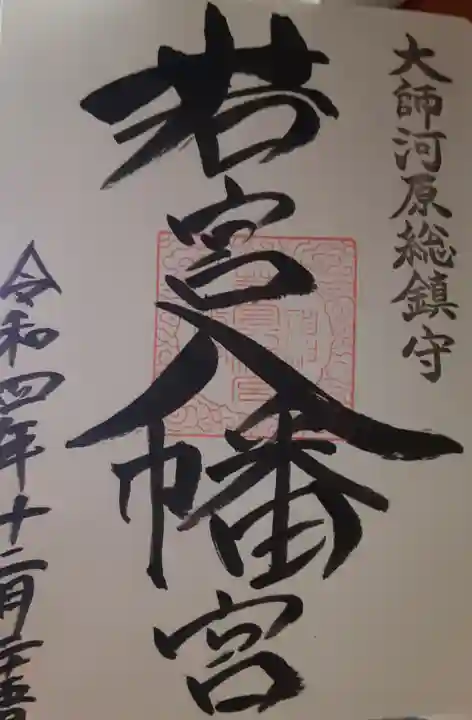 大師河原総鎮守
若宮八幡宮
令和四年十二月二十五日